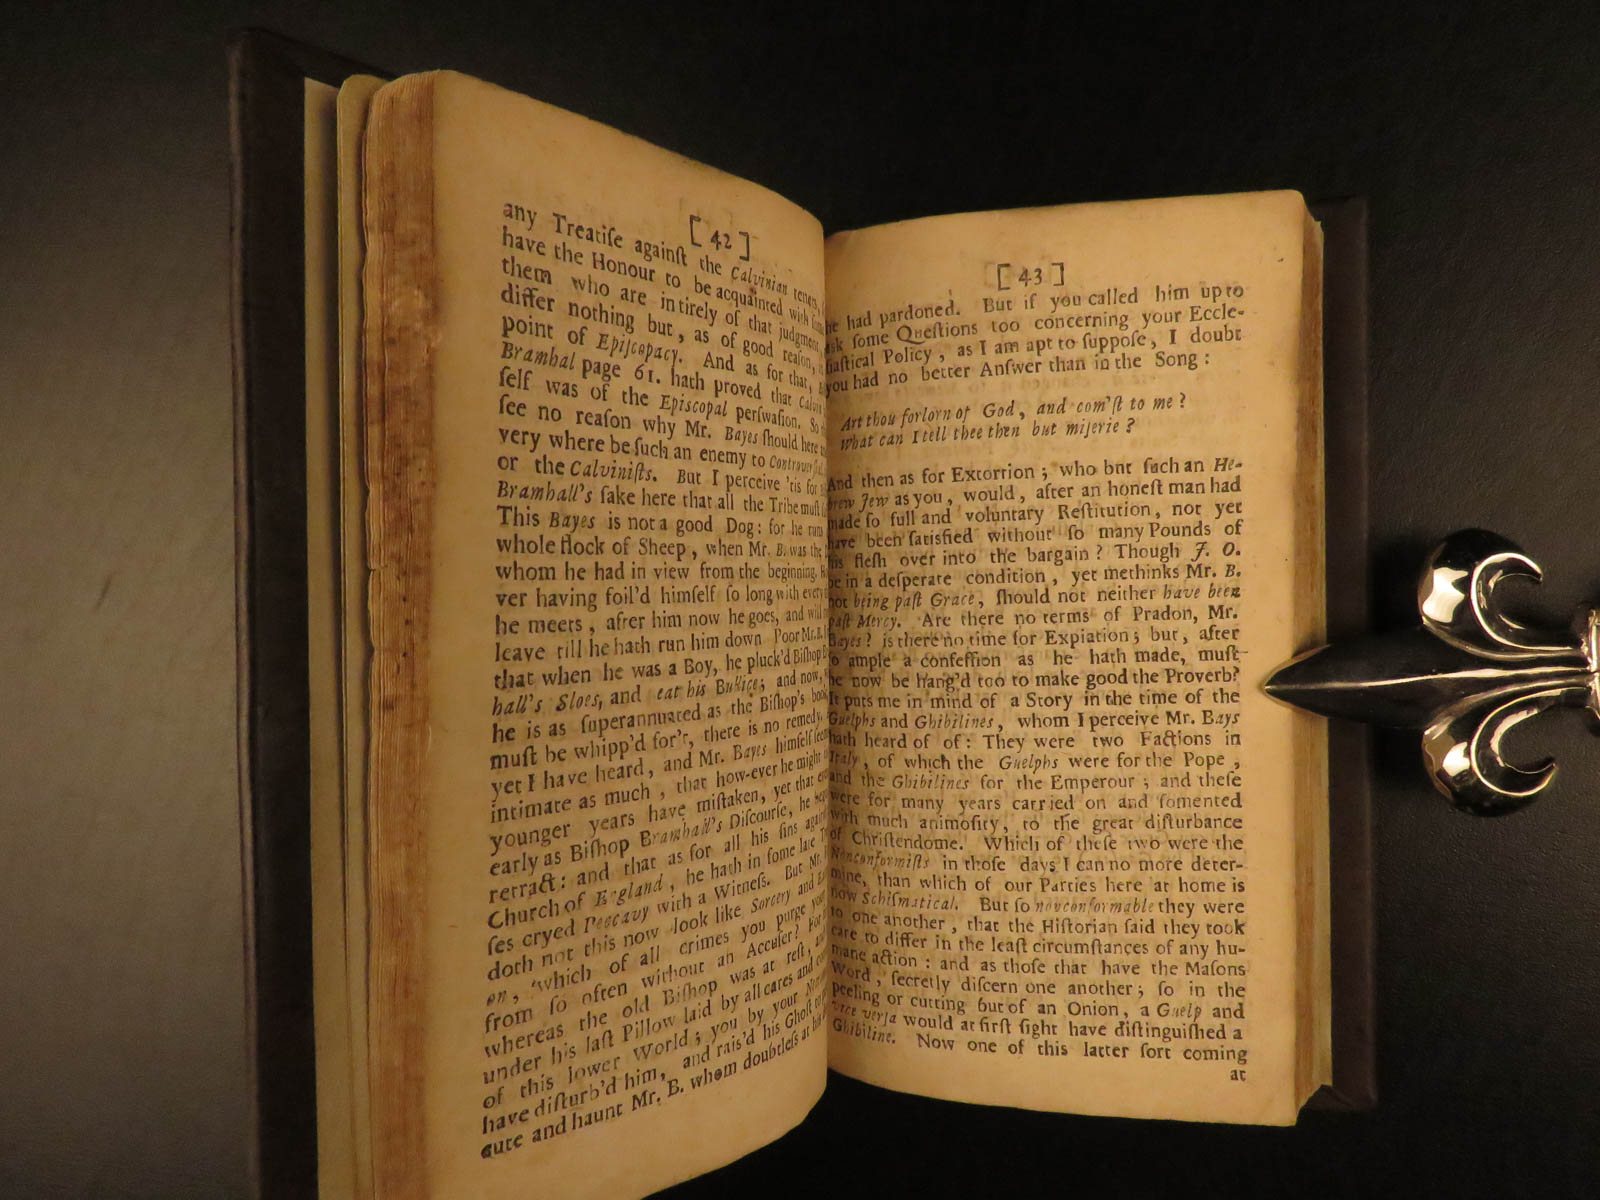 [ 42 ]
any Treatiſe againſt the Calvinian
have the Honour to be acquainted with
them who are intirely of that judgment,
differ nothing but, as of good reaſon,
point of Epiſcopacy. And as for that,
Bramhal page 61. hath proved that
ſelf was of the Episcopal perſwaſion. So
ſee no reaſon why Mr. Bayes ſhould here
very where be ſuch an enemy to
or the Calviniſts. But I perceive 'tis for
Bramhall's ſake here that all the Tribe muſt
This Bayes is not a good Dog: for he runs
whole flock of Sheep, when Mr. B. was the
whom he had in view from the beginning.
ver having foil'd himſelf ſo long with every
he meets, after him now he goes, and will
leave till he hath run him down Poor Mr. B.
that when he was a Boy, he pluck'd Biſhop
hall's Sloes, and eat his Bullice; and now,
he is as ſuperannuated as the Biſhop's book,
muſt be whipp'd for't, there is no remedy.
yet I have heard, and Mr. Bayes himſelf
intimate as much, that how-ever he might
younger years have miſtaken, yet that
early as Biſhop Bramhall's Diſcourſe, he
retract: and that as for all his ſins
Church of England, he hath in ſome late
ſes cryed Peccavy with a Witneſs. But Mr.
doth not this now look like Sorcery and
on, which of all crimes you purge
from ſo often without an Accuſer? For
whereas the old Biſhop was at reſt, and
under his laſt Pillow laid by all cares and
of this lower World; you by your
have diſturb'd him, and rais'd his Ghoſt to
cute and haunt Mr. B. whom doubtleſs at his
[ 43 ]
he had pardoned. But if you called him up to
ask ſome Queſtions too concerning your Eccle-
ſiaſtical Policy, as I am apt to ſuppoſe, I doubt
you had no better Anſwer than in the Song:
Art thou forlorn of God, and com'ſt to me?
What can I tell thee then but miſerie?
And then as for Extortion; who bnt ſuch an He-
brew Jew as you, would, after an honeſt man had
made ſo full and voluntary Reſtitution, not yet
have been ſatisfied without ſo many Pounds of
his fleſh over into the bargain? Though J. O.
be in a deſperate condition, yet methinks Mr. B.
not being paſt Grace, ſhould not neither have been
paſt Mercy. Are there no terms of Pradon, Mr.
Bayes? is there no time for Expiation; but, after
ſo ample a confeſſion as he hath made, muſt
he now be hang'd too to make good the Proverb?
It puts me in mind of a Story in the time of the
Guelphs and Ghibilines, whom I perceive Mr. Bays
hath heard of of: They were two Factions in
Italy, of which the Guelphs were for the Pope,
and the Ghibilines for the Emperour; and theſe
were for many years carried on and fomented
with much animoſity, to the great diſturbance
of Chriſtendome. Which of theſe two were the
Nonconformiſts in thoſe days I can no more deter-
mine, than which of our Parties here at home is
now Schiſmatical. But ſo nonconformable they were
to one another, that the Hiſtorian ſaid they took
care to differ in the leaſt circumſtances of any hu-
mane action: and as thoſe that have the Maſons
Word, ſecretly diſcern one another; ſo in the
peeling or cutting but of an Onion, a Guelp and
vice verſa would at firſt ſight have diſtinguiſhed a
Ghibiline. Now one of this latter ſort coming
at